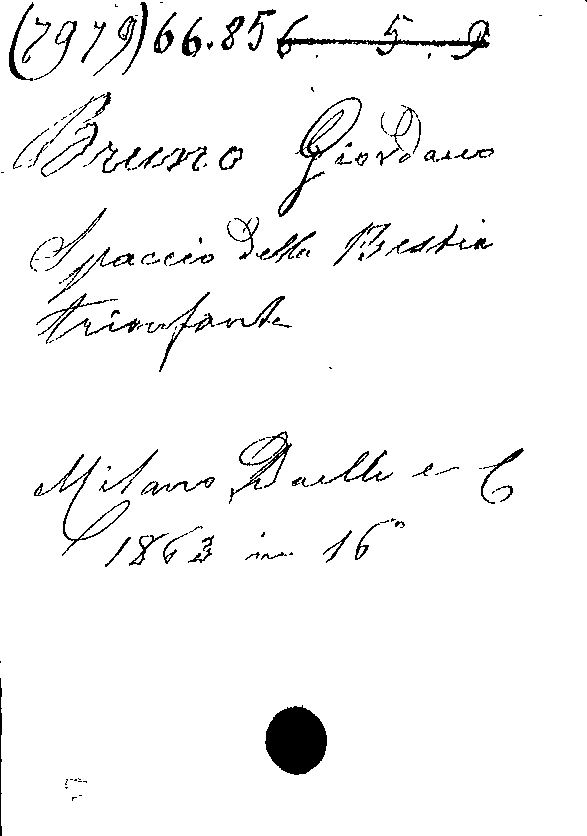 (7979) 66.856 5.9
Bruno Giordano
Spaccio della Bestia
trionfante
Milano Daelli e C
1863 in 16°